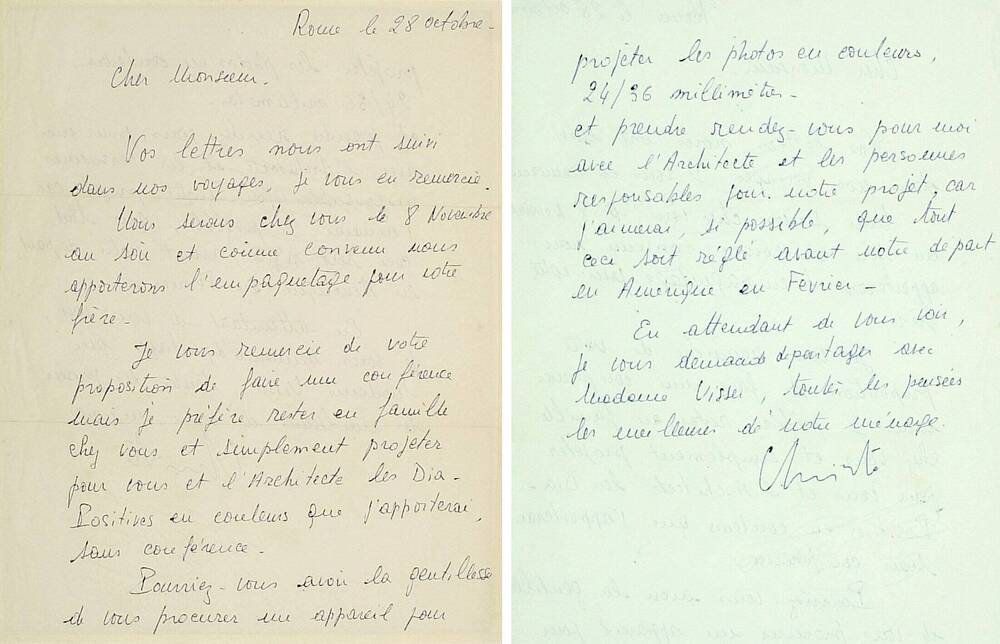 Rome le 28 octobre -
Cher Monsieur.
Vos lettres nous ont suivi
dans nos voyages, je vous en remercie.
Nous serons chez vous le 8 Novembre
au soir et comme convenu nous
apporterons l'empaquetage pour votre
frère -
Je vous remercie de votre
proposition de faire une conférence
mais je préfère rester en famille
chez vous et simplement projeter
pour vous et l'Architecte les Dia-
Positives en couleurs que j'apporterai,
sans conférence -
Pourriez-vous avoir la gentillesse
de vous procurer un appareil pour
projeter les photos en couleurs,
24/36 millimètres -
et prendre rendez-vous pour moi
avec l'Architecte et les personnes
responsables pour notre projet, car
j'aimerai, si possible, que tout
ceci soit réglé avant notre départ
en Amérique en Février -
En attendant de vous voir,
je vous demande de partager avec
Madame Visser, toutes les pensées
les meilleures de notre ménage.
Christo